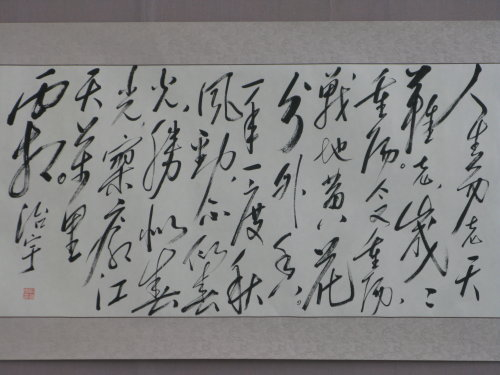 人生易老天
難老。歲々
重陽。今又重陽、
戰地黄花
分外香。
一年一度秋
風勁、不似春
光。勝似春
光、寥廓江
天萬里
霜。
治宇